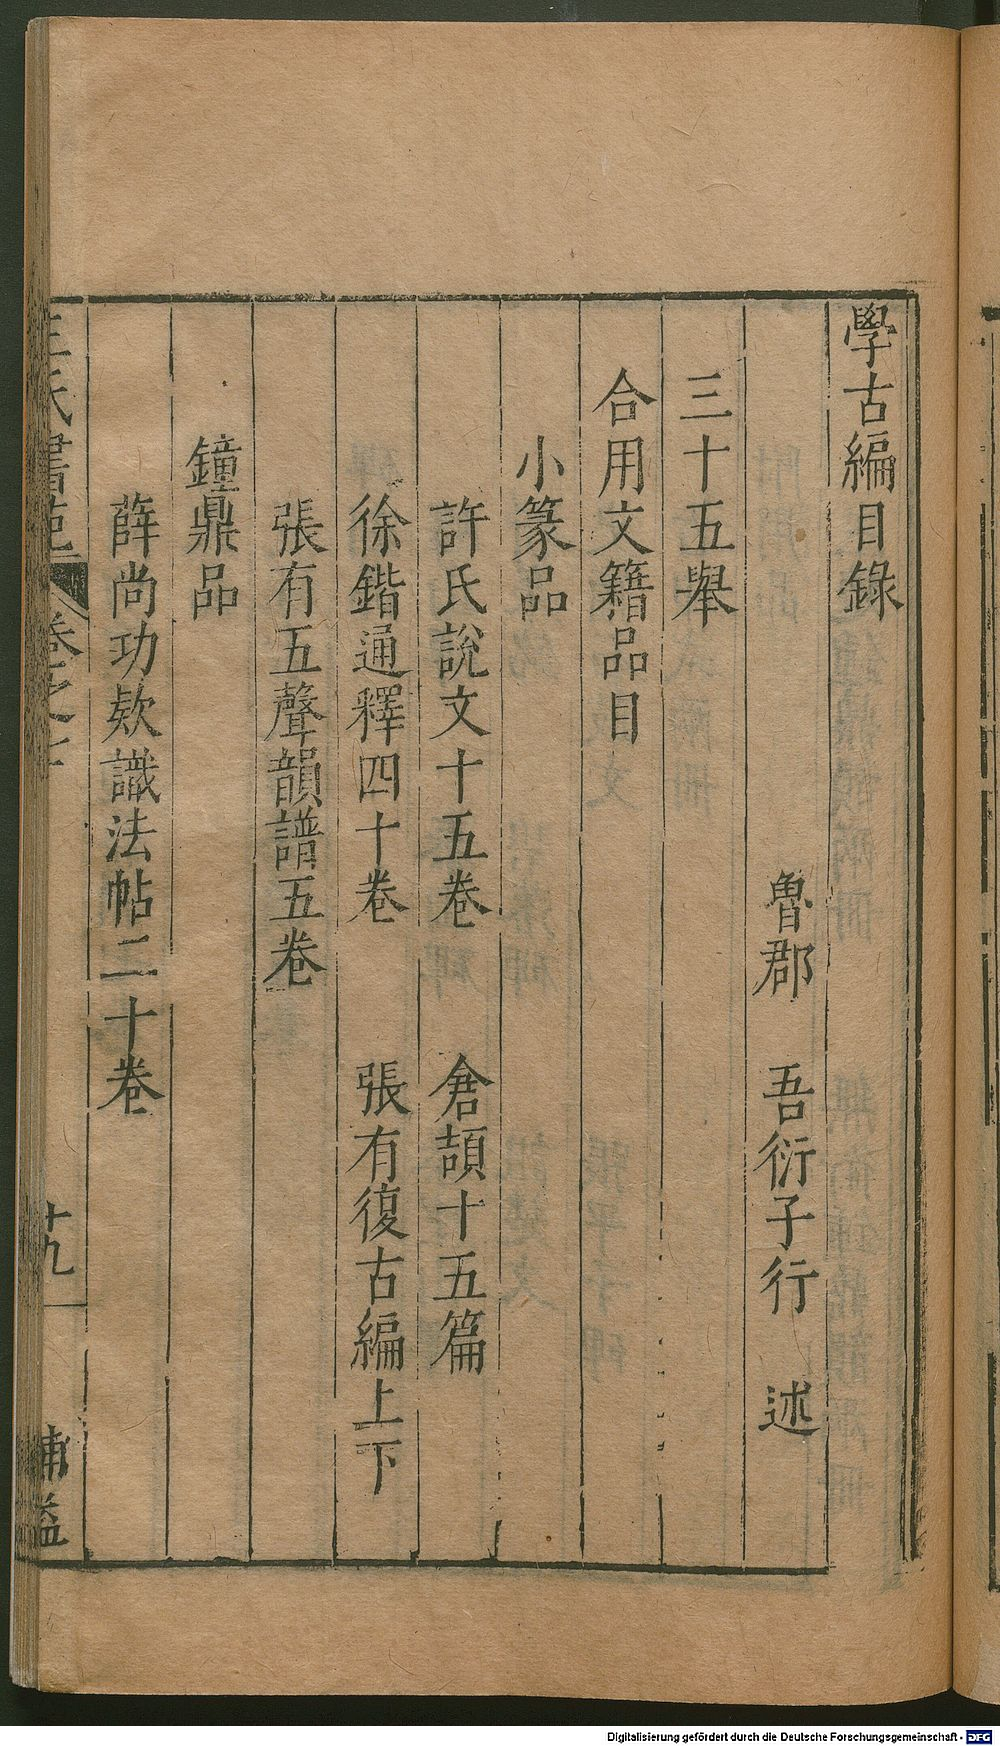 學古編目錄
魯郡　吾衍子行　述
三十五舉
合用文籍品目
小篆品
許氏說文十五卷　倉頡十五篇
徐鍇通釋四十卷　張有復古編上下
張有五聲韻譜五卷
鐘鼎品
薛尚功欵識法帖二十卷
王氏書苑　卷之一　十九
Digitalisierung gefördert durch die Deutsche Forschungsgemeinschaft - DFG